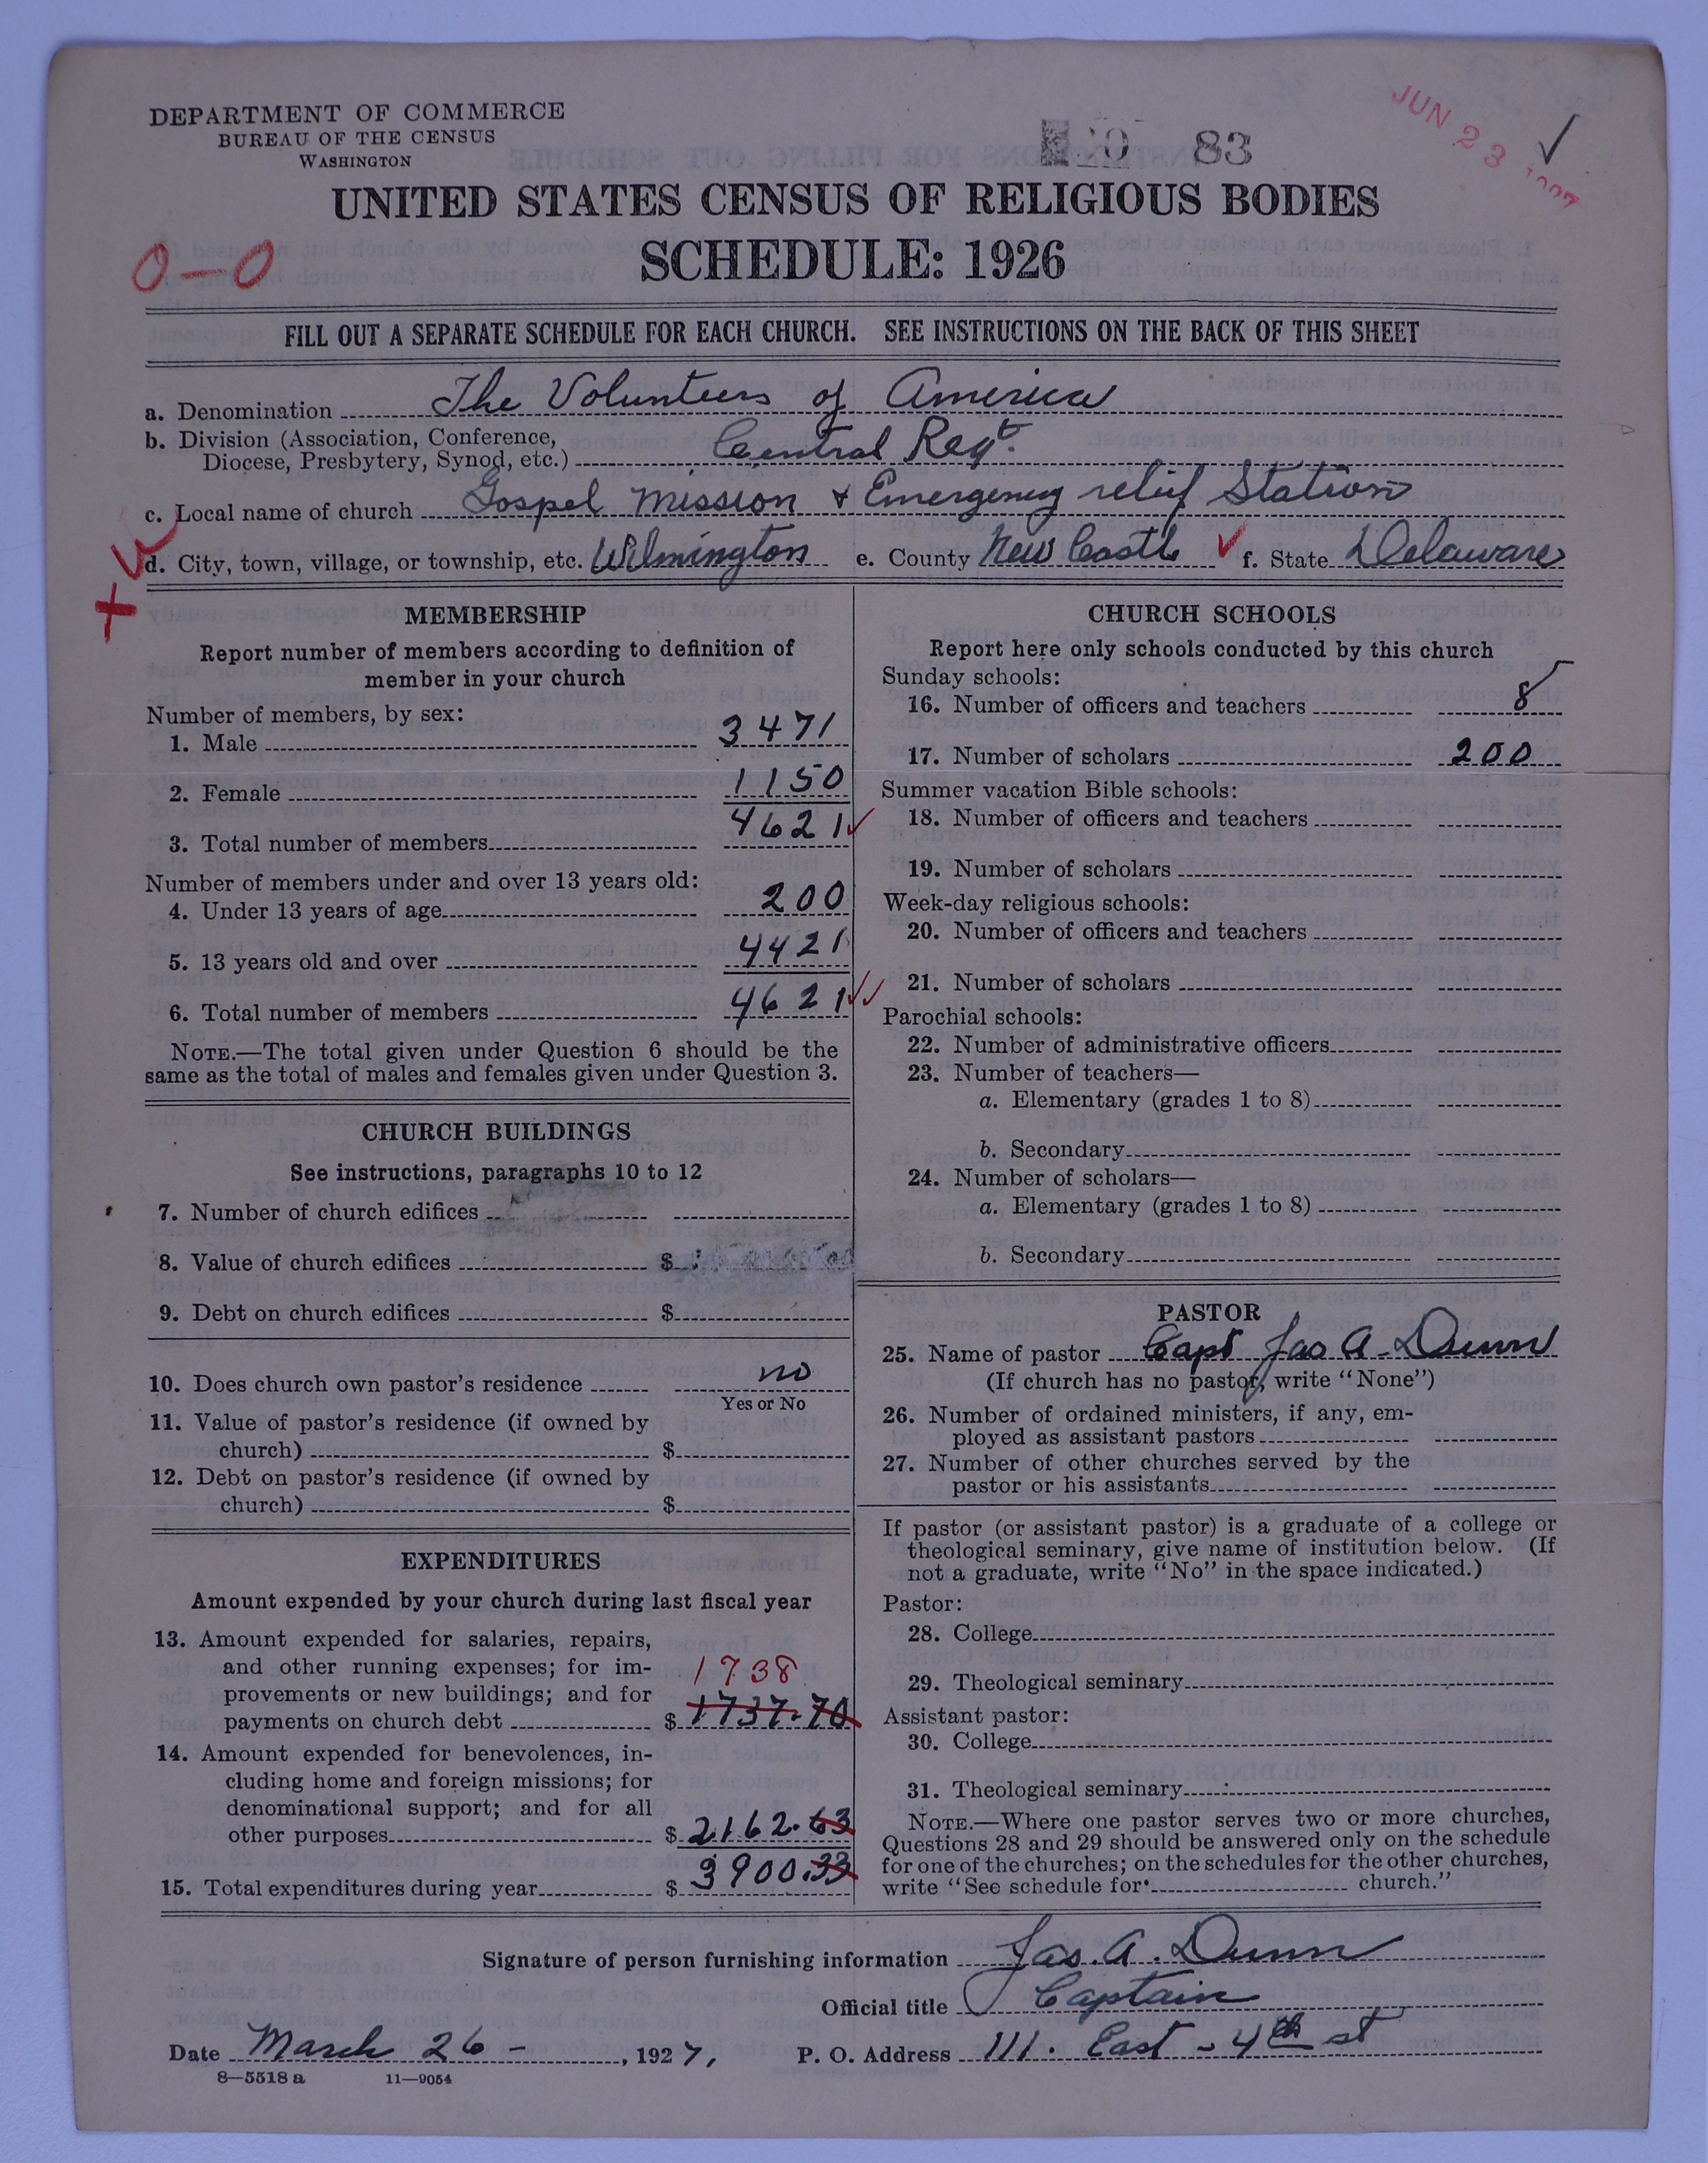 DEPARTMENT OF COMMERCE
BUREAU OF THE CENSUS
WASHINGTON
83
JUN 23 1927
UNITED STATES CENSUS OF RELIGIOUS BODIES
SCHEDULE: 1926
0-0
FILL OUT A SEPARATE SCHEDULE FOR EACH CHURCH. SEE INSTRUCTIONS ON THE BACK OF THIS SHEET
a. Denomination The Volunteers of America
b. Division (Association, Conference,
Diocese, Presbytery, Synod, etc.) Central Regt.
c. Local name of church Gospel Mission & Emergency relief Station
d. City, town, village, or township, etc. Wilmington e. County New Castle f. State Delaware
MEMBERSHIP
Report number of members according to definition of
member in your church
Number of members, by sex:
1. Male 3471
2. Female 1150
3. Total number of members 4621
Number of members under and over 13 years old:
4. Under 13 years of age 200
5. 13 years old and over 4421
6. Total number of members 4621
NOTE.—The total given under Question 6 should be the
same as the total of males and females given under Question 3.
CHURCH BUILDINGS
See instructions, paragraphs 10 to 12
7. Number of church edifices
8. Value of church edifices $
9. Debt on church edifices $
10. Does church own pastor's residence no
Yes or No
11. Value of pastor's residence (if owned by
church) $
12. Debt on pastor's residence (if owned by
church) $
EXPENDITURES
Amount expended by your church during last fiscal year
13. Amount expended for salaries, repairs,
and other running expenses; for im-
1738
provements or new buildings; and for
payments on church debt $ 1737.70
14. Amount expended for benevolences, in-
cluding home and foreign missions; for
denominational support; and for all
other purposes $ 2162.63
15. Total expenditures during year $ 3900.33
CHURCH SCHOOLS
Report here only schools conducted by this church
Sunday schools:
16. Number of officers and teachers 8
17. Number of scholars 200
Summer vacation Bible schools:
18. Number of officers and teachers
19. Number of scholars
Week-day religious schools:
20. Number of officers and teachers
21. Number of scholars
Parochial schools:
22. Number of administrative officers
23. Number of teachers—
a. Elementary (grades 1 to 8)
b. Secondary
24. Number of scholars—
a. Elementary (grades 1 to 8)
b. Secondary
PASTOR
25. Name of pastor Capt Jas A. Dunn
(If church has no pastor, write "None")
26. Number of ordained ministers, if any, em-
ployed as assistant pastors
27. Number of other churches served by the
pastor or his assistants
If pastor (or assistant pastor) is a graduate of a college or
theological seminary, give name of institution below. (If
not a graduate, write "No" in the space indicated.)
Pastor:
28. College
29. Theological seminary
Assistant pastor:
30. College
31. Theological seminary
NOTE.—Where one pastor serves two or more churches,
Questions 28 and 29 should be answered only on the schedule
for one of the churches; on the schedules for the other churches,
write "See schedule for church."
Signature of person furnishing information Jas. A. Dunn
Official title Captain
Date March 26 - , 1927, P. O. Address 111. East - 4th st
8—5518 a 11—9054